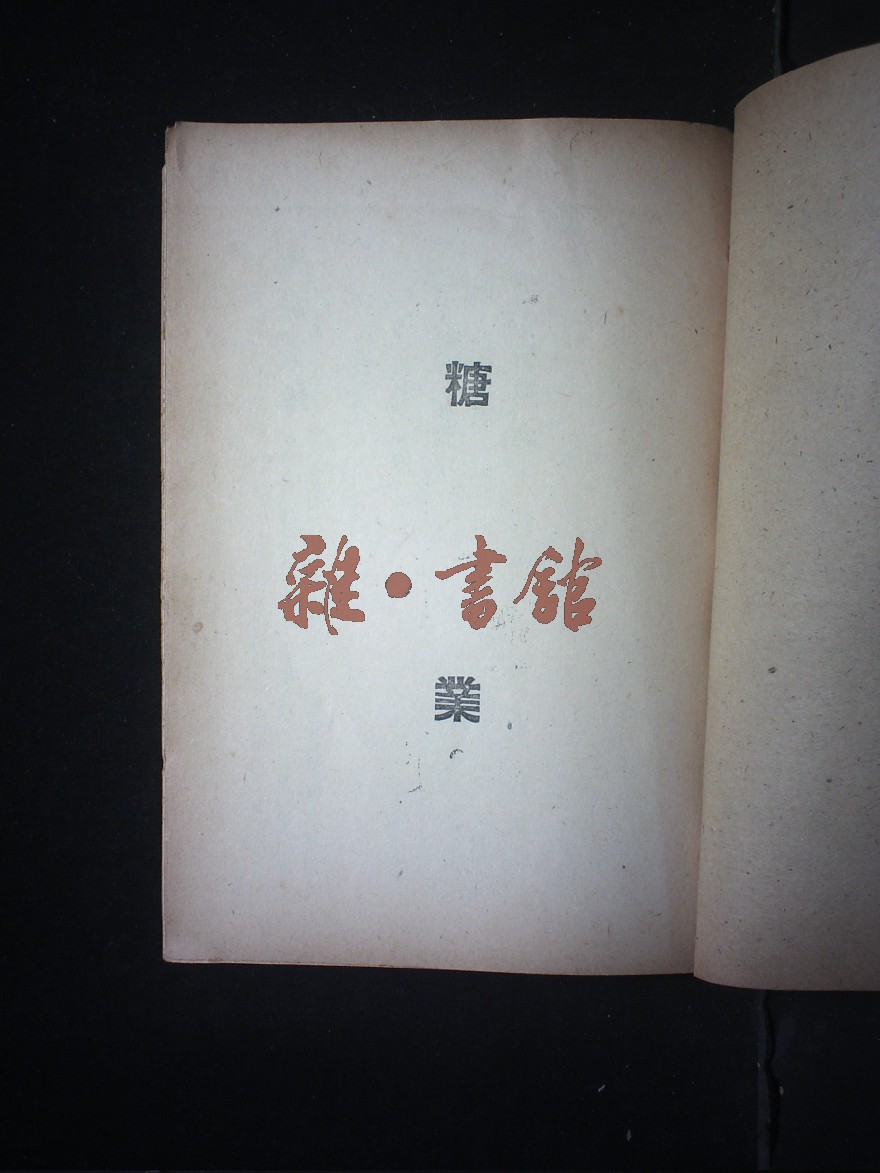 糖
雜·書館
業